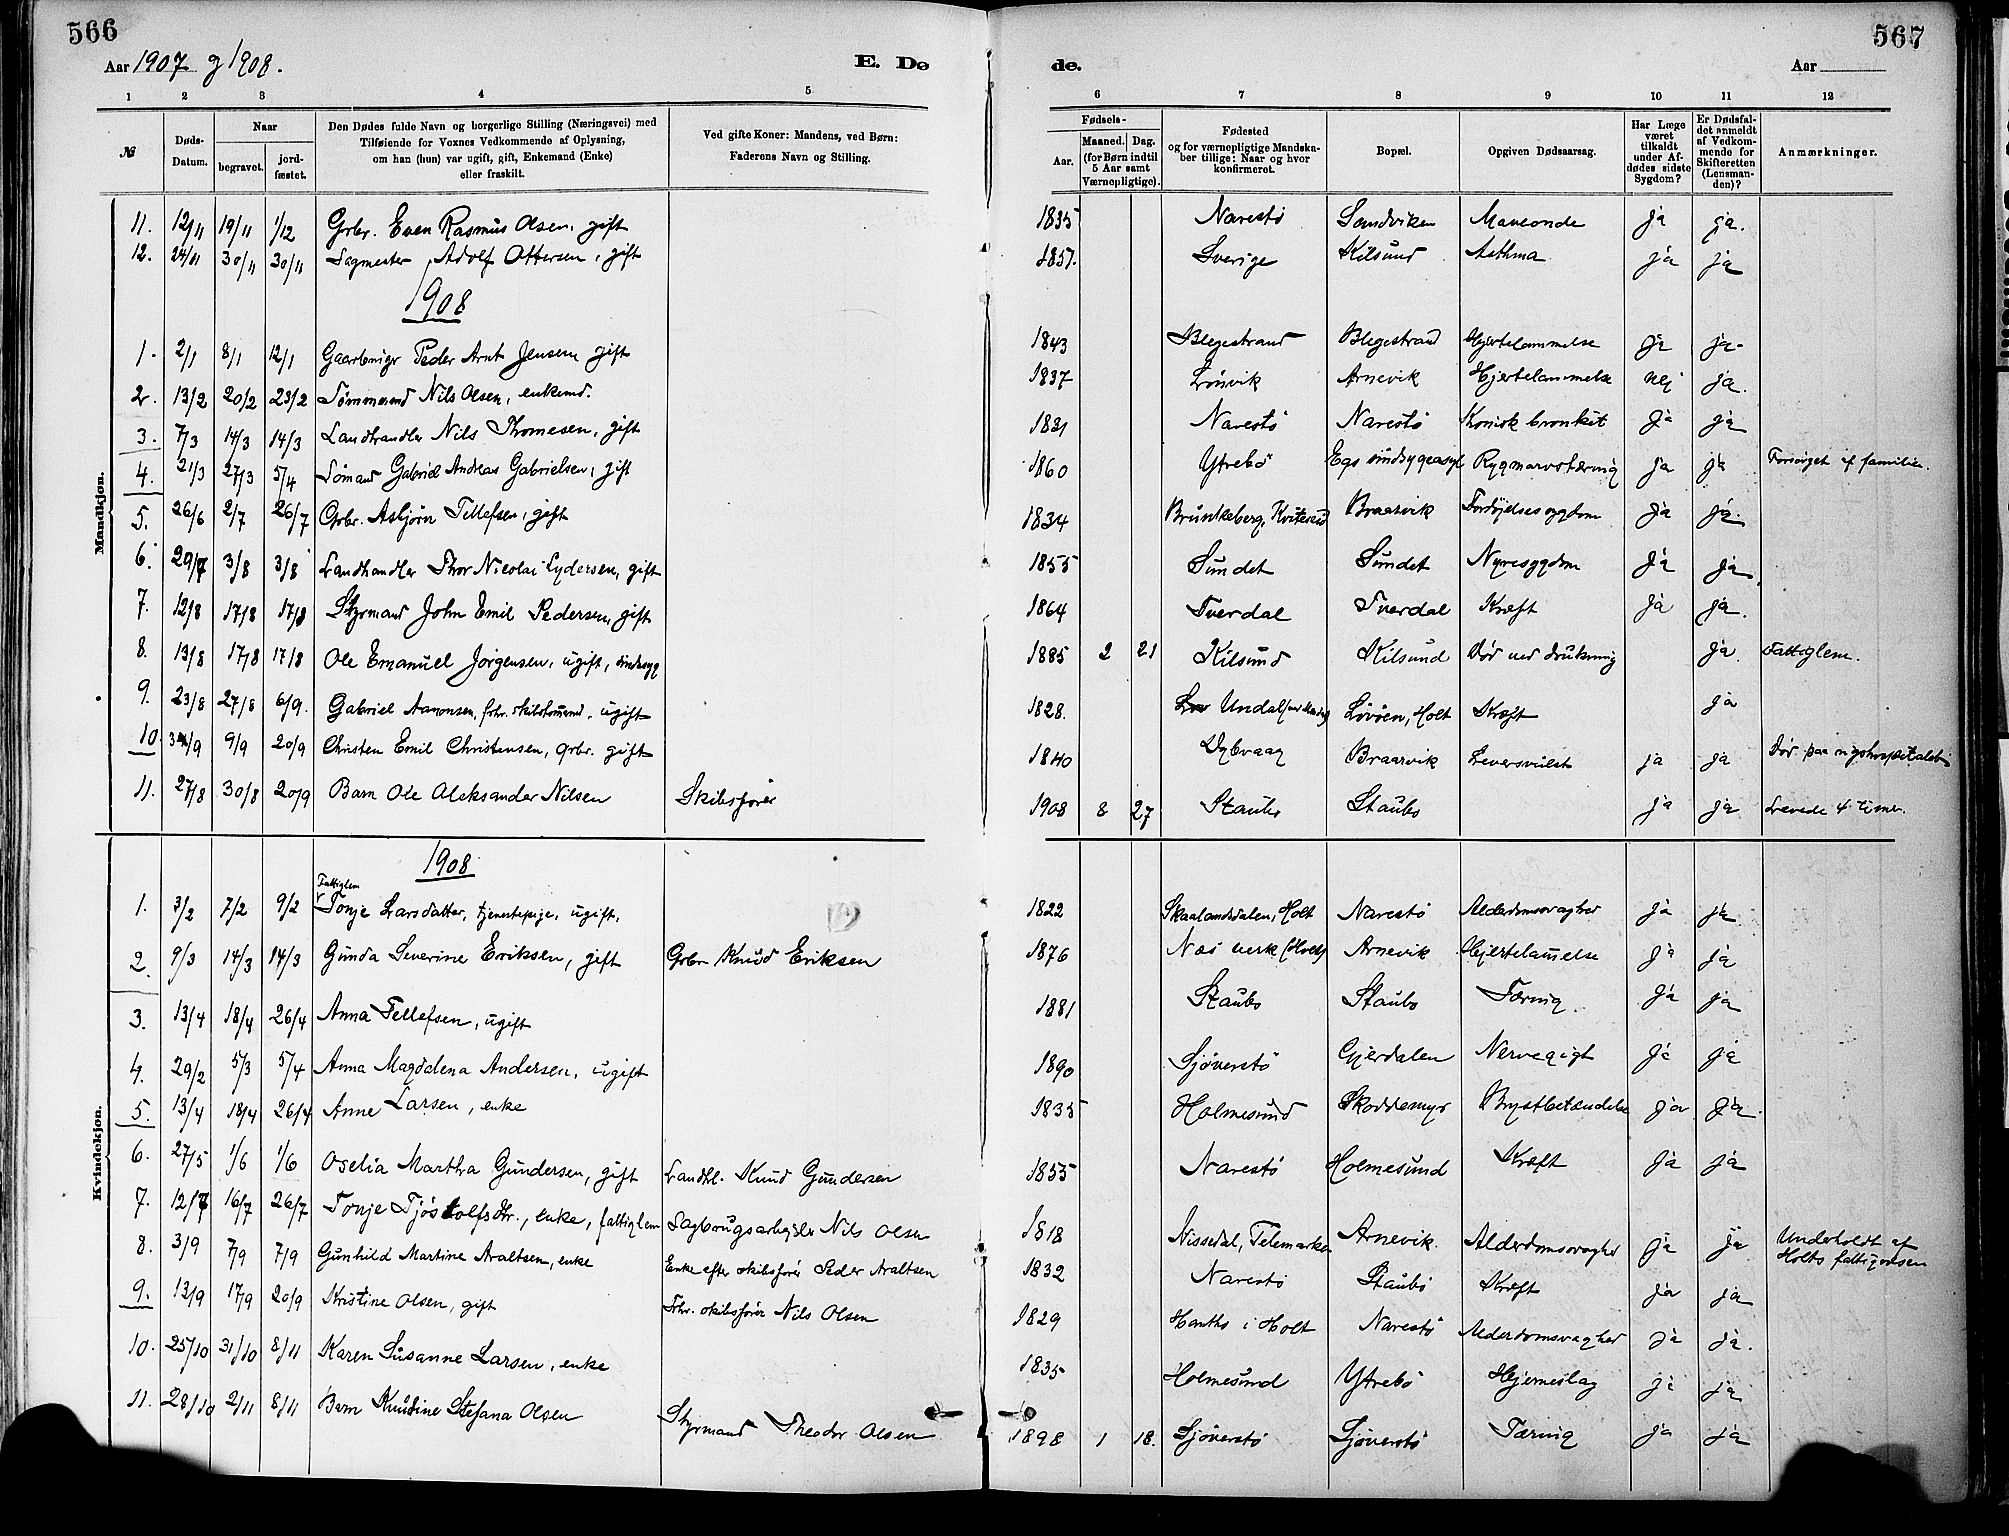 566
Aar 1907 og 1908.
E. Dø
1 2 3 4 5
№
Døds-Datum.
Naar
begravet.
jord-fæstet.
Den Dødes fulde Navn og borgerlige Stilling (Næringsvei) med
Tilføiende for Voxnes Vedkommende af Oplysning,
om han (hun) var ugift, gift, Enkemand (Enke)
eller fraskilt.
Ved gifte Koner: Mandens, ved Børn:
Faderens Navn og Stilling.
Mandkjøn.
11. 12/11 19/11 1/12 Grbr. Even Rasmus Olsen, gift
12. 24/11 30/11 30/11 Sagmester Adolf Ottersen, gift
1908
1. 2/1 8/1 12/1 Gaardbruger Peder Arnt Jensen gift
2. 13/2 20/2 23/2 Tømmermd Nils Olsen, enkemd.
3. 7/3 14/3 14/3 Landhandler Nils Thomesen, gift
4. 21/3 27/3 5/4 Sømand Gabriel Andreas Gabrielsen, gift
5. 26/6 2/7 26/7 Grbr. Asbjørn Tellefsen, gift
6. 29/7 3/8 3/8 Landhandler Thor Nicolai Lydersen, gift
7. 12/8 17/8 17/8 Styrmand John Emil Pedersen, gift
8. 13/8 17/8 17/8 Ole Emanuel Jørgensen, ugift, sindssyg
9. 23/8 27/8 6/9. Gabriel Aamonsen, fhv. skibstømmermd. ugift
10 9/9 20/9 Christen Emil Christensen, grbr. gift
11. 27/8 30/8 20/9 Barn Ole Aleksander Nilsen Skibsfører
Kvindekjøn.
1908
Fattiglem
1. 3/2 7/2 9/2 Tonje Larsdatter, tjenestepige, ugift,
2. 9/3 14/3 14/3 Gunda Severine Eriksen, gift Grbr Knud Eriksen
3. 13/4 18/4 26/4 Anna Tellefsen, ugift
4. 29/2 5/3 5/4 Anna Magdalena Andersen, ugift
5. 13/4 18/4 26/4 Anne Larsen, enke
6. 27/5 1/6 1/6 Oselia Martha Gundersen, gift Landhl. Knud Gundersen
7. 12/7 16/7 26/7 Tonje Tjøstolfsdtr., enke, fattiglem Sagbrugsarbejder Nils Olsen
8. 3/9 7/9 7/9 Gunhild Martine Araltsen, enke Enke efter skibsfører Peder Araltsen
9. 13/9 17/9 20/9 Kristine Olsen, gift Fhv. skibsfører Nils Olsen
10. 25/10 31/10 8/11 Karen Susanne Larsen, enke
11. 28/10 2/11 8/11 Barn Knudine Stefana Olsen Styrmand Theodor Olsen
567
de.
Aar
6 7 8 9 10 11 12
Fødsels-
Aar.
Maaned. Dag.
(for Børn indtil
5 Aar samt
Værnepligtige).
Fødested
og for værnepligtige Mandska-
ber tillige: Naar og hvor
konfirmeret.
Bopæl.
Opgiven Dødsaarsag.
Har Læge
været
tilkaldt
under Af-
dødes sidste
Sygdom?
Er Dødsfal-
det anmeldt
af Vedkom-
mende for
Skifteretten
(Lensman-
den)?
Anmærkninger.
1835 Narestø Sandviken Maveonde ja ja.
1857. Sverige Kilsund Asthma ja ja
1843 Blegestrand Blegestrand Hjertelammelse ja ja.
1837 Lønvik Arnevik Hjertelammelse nej ja.
1831 Narestø Narestø Kronisk bronkit ja ja
1860 Ytrebø Egs sindsygeasyl Rygmarvstæring ja ja Forsørget af familien.
1834 Brunkeberg, Kviteseid Braarvik Fordøjelsessygdom ja ja.
1855 Sundet Sundet Nyresygdom ja ja.
1864 Tverdal Tverdal Kræft ja ja.
1885 2 21 Kilsund Kilsund Død ved drukning ja Fattiglem.
1828. Undal Løvøen, Holt Kræft ja
1840 Dybvaag Braarvik Leversvulst ja ja Død paa rigshospitalet
1908 8 27 Staubø Staubø ja ja Levede 4 timer.
1822 Skaalandsdalen, Holt Narestø Alderdomssvaghed ja ja
1876 Næs verk (Holt) Arnevik Hjertelammelse ja ja
1881 Staubø Staubø Tæring. ja ja
1890 Sjøverstø Gjerdalen Nervegigt ja ja
1835 Holmesund Skoddemyr Brystbetændelse ja ja.
1855 Narestø Holmesund Kræft ja ja
1818 Nissedal, Telemarken Arnevik. Alderdomssvaghed ja ja Underholdt af
Holts fattigvæsen
1832 Narestø Staubø Kræft ja ja
1829 i Holt Narestø Alderdomsvaghed ja ja.
1835 Holmesund Ytrebø Hjerneslag ja ja
1898 1 18. Sjøverstø Sjøverstø Tæring ja ja